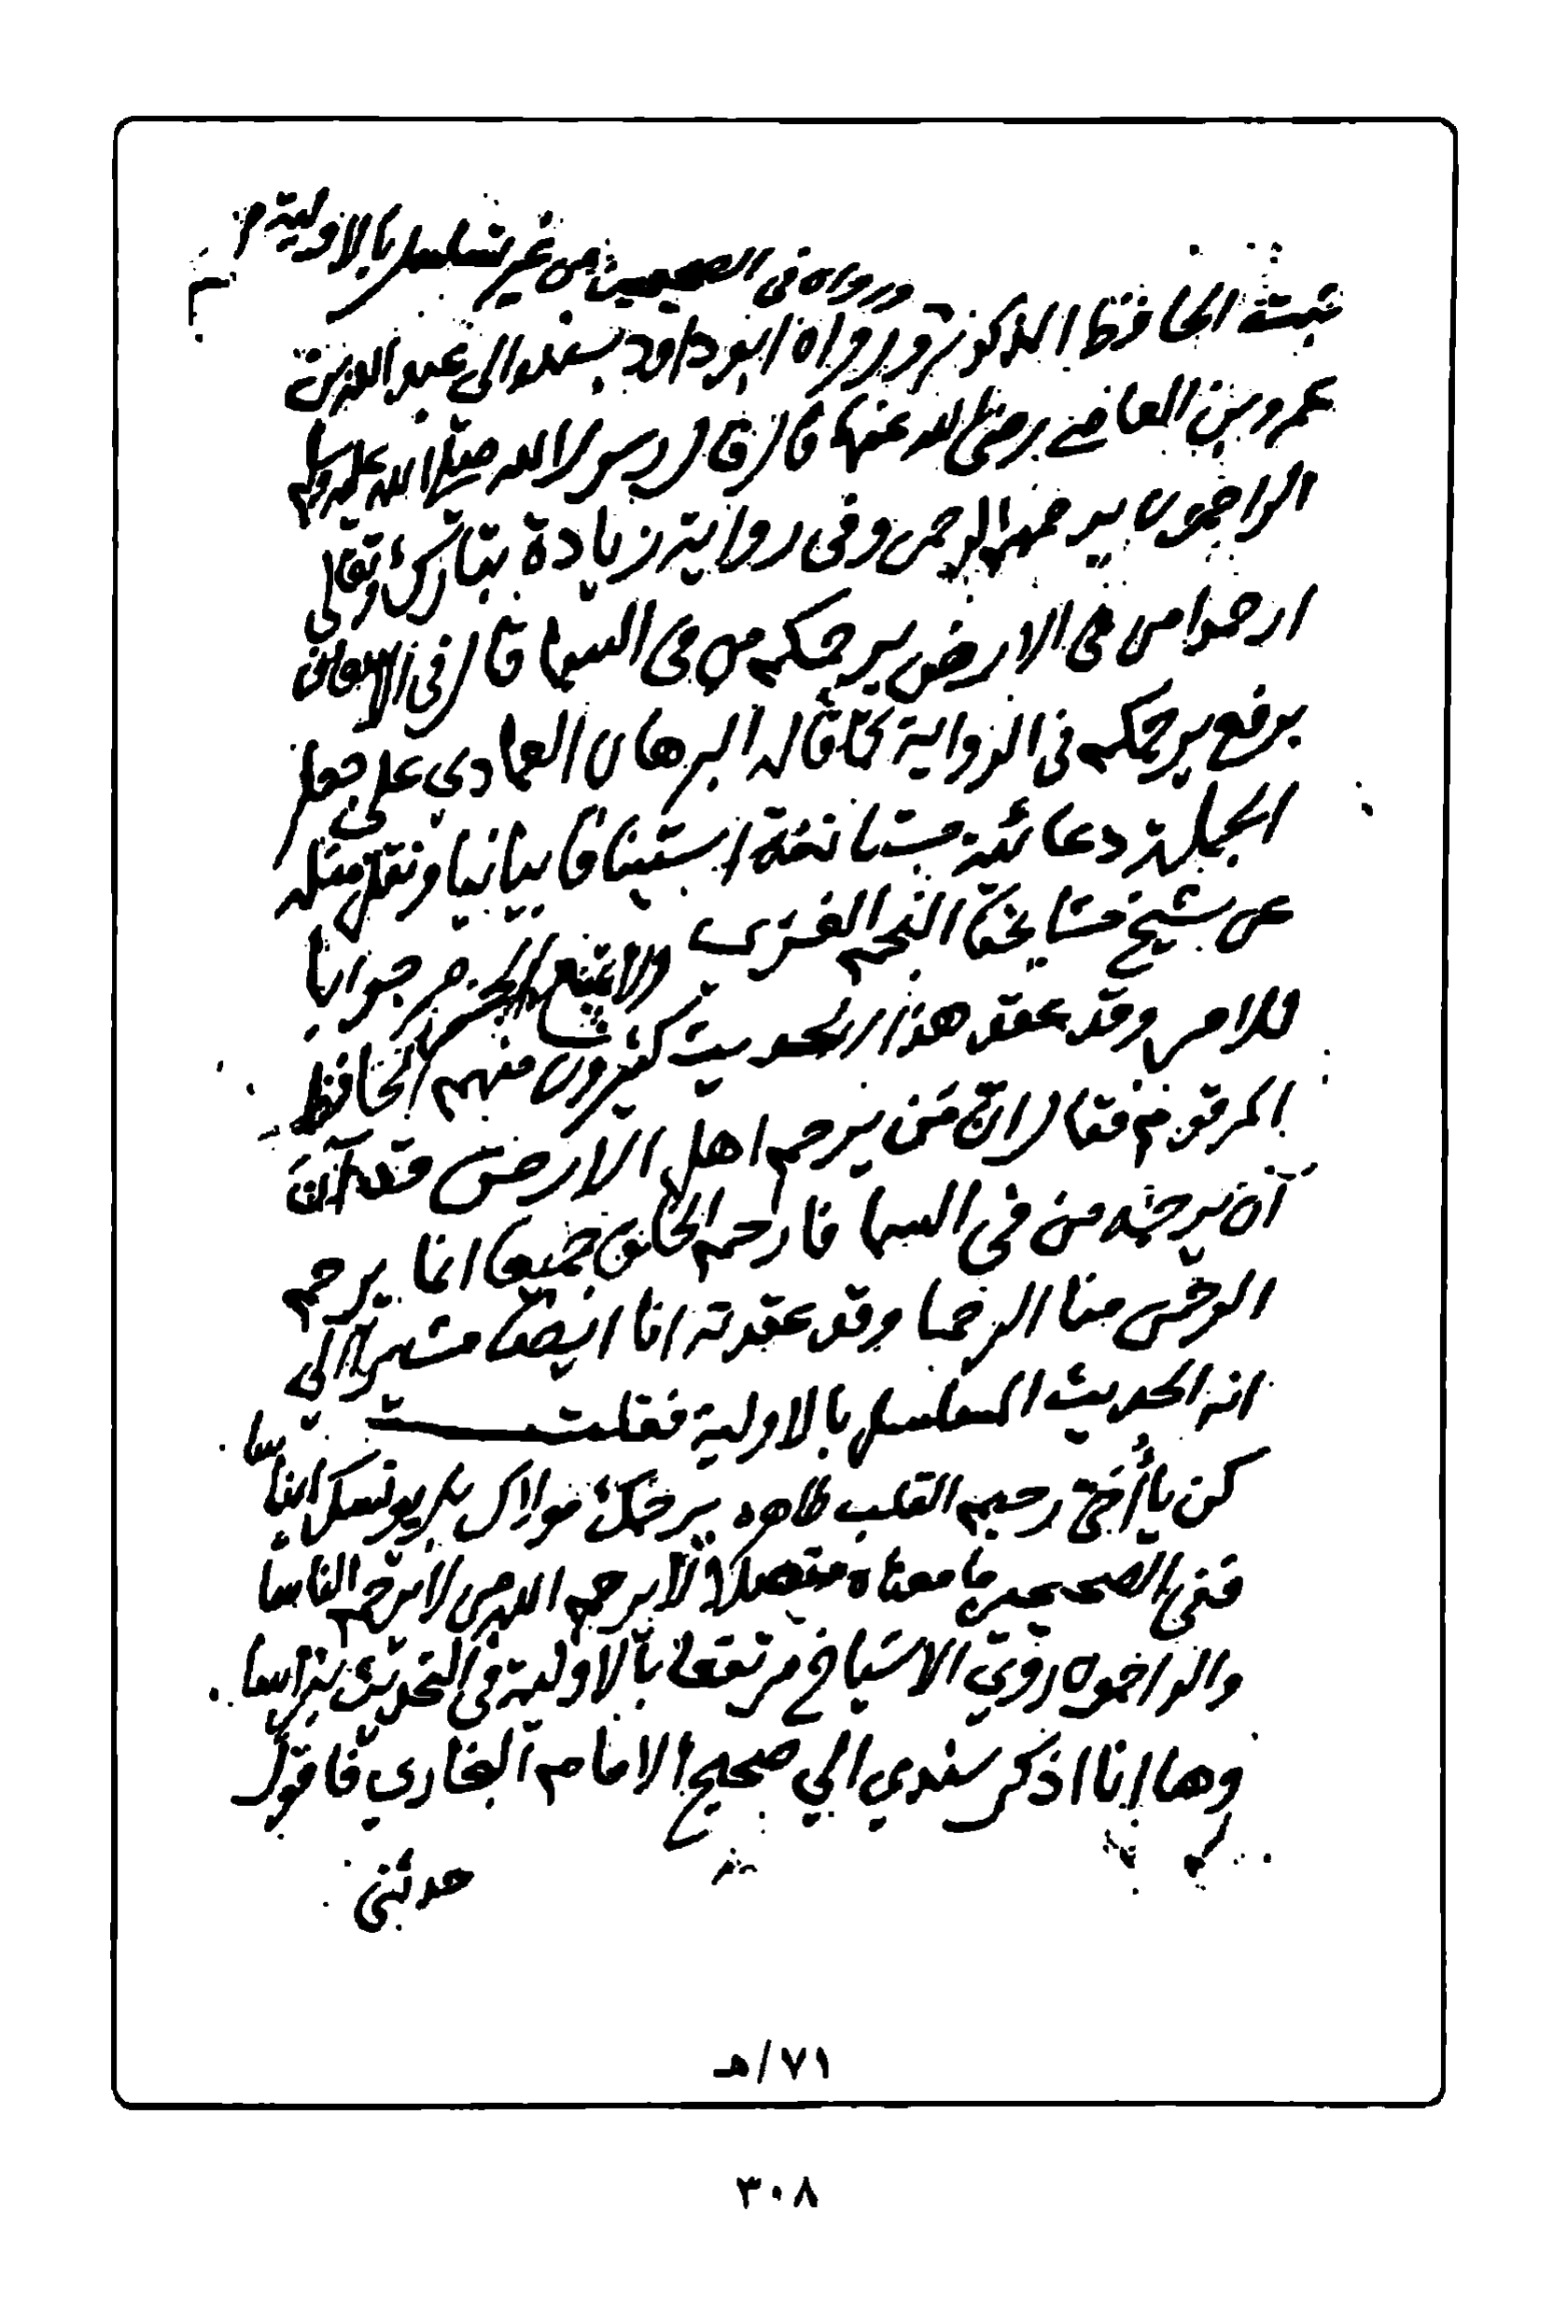 ورواه في الصحيحين من غير تسلسل بالاولية م
ثبت الحافظ المذكور ورواه ابو داود بسنده الى عبد الله بن
عمرو بن العاص رضي الله عنهما قال قال رسول الله صلى الله عليه وسلم
الراحمون يرحمهم الرحمن وفي رواية زيادة تبارك وتعالى
ارحموا من في الارض يرحمكم من في السما قال في الامعان
برفع يرحمكم في الرواية كما قاله البرهان العمادي على جعل
الجملة دعائية مستانفة استينافا بيانيا ونقل مثله
عن شيخ مشايخنا النجم الغزي والا متنع الجزم جوابا
للامر وقد عقد هذا الحديث كثيرون منهم الحافظ
المرقوم فقال ان من يرحم اهل الارض قد آن
آن يرحمه من في السما فارحم الخلق جميعا انما يرحم
الرحمن منا الرحما وقد عقدته انا ايضا مشيرا الى
انه الحديث المسلسل بالاولية فقلت
كن يا أخي رحيم القلب طاهره يرحمك مولاك بل يونسك ايناسا
ففي الصحيحين ما معناه متصلا لا يرحم الله من لا يرحم الناسا
والراحموه روي الاشياخ مرتفعا بالاولية في التحديث نبراسا
وها انا اذكر سندي الي صحيح الامام البخاري فاقول
حدثني
٧١/هـ
٣٠٨